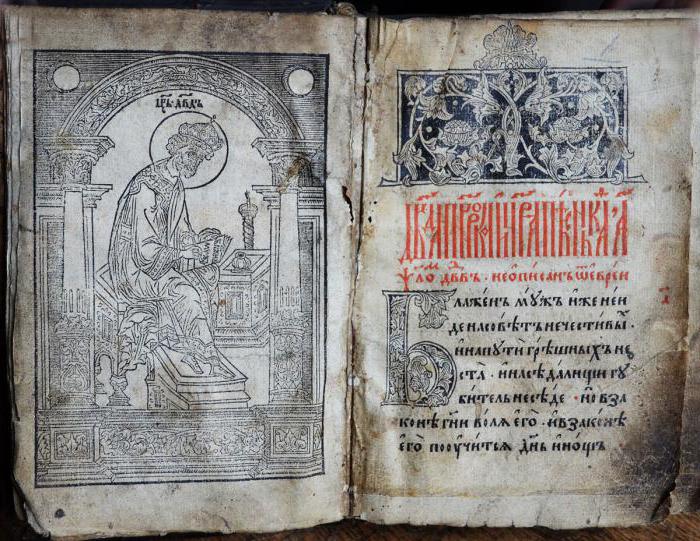 цр҃ь дв҃дъ
Дв҃да прⷪ҇рока и цр҃ѧ пѣснь. а҃
ѱло́м дв҃дъ · не ѡписанъ ѿ еврей
Блаженъ мужъ иже не и
де на совѣтъ нечестивы́хъ ·
и на пути грѣшныхъ не
ста̀ · и на сѣдалищи гу
битель не сѣде · но в за
конѣ гн҃и волѧ его̀ · и в законѣ
его̀ поꙋчитьсѧ дн҃ь и нощь